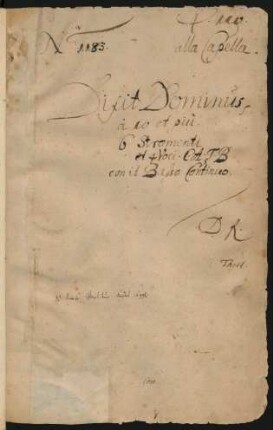 No 1183.
alla Capella.
Dixit Dominus,
à 10 et più.
6 Stromenti
et 4 Voci. CATB
con il Basso Continuo.
D R.